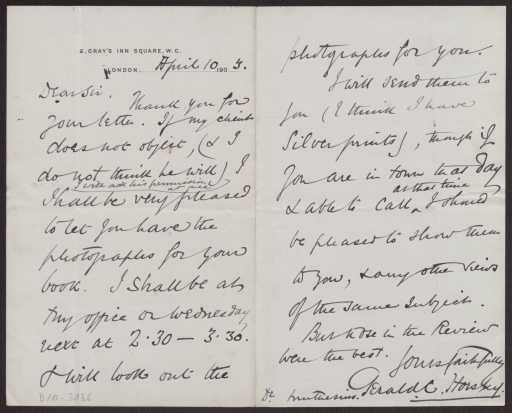 2, GRAY'S INN SQUARE, W.C.
LONDON. April 10 1903.
Dear Sir. Thank you for
your letter. If my client
does not object, (& I
do not think he will) I
I will ask his permission
shall be very pleased
to let you have the
photographs for your
book. I shall be at
my office on Wednesday
next at 2.30 — 3.30.
I will look out the
photographs for you.
I will send them to
you (I think I have
Silver prints), though if
you are in town that day
at that time
& able to call, I should
be pleased to show them
to you, & any other views
of the same subject.
But those in the Review
were the best. Yours faithfully
Gerald C. Horsley.
Dr